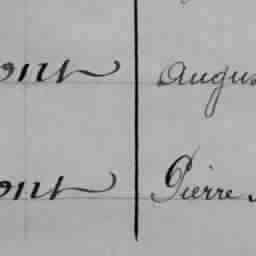 ont Augus
ont Pierre